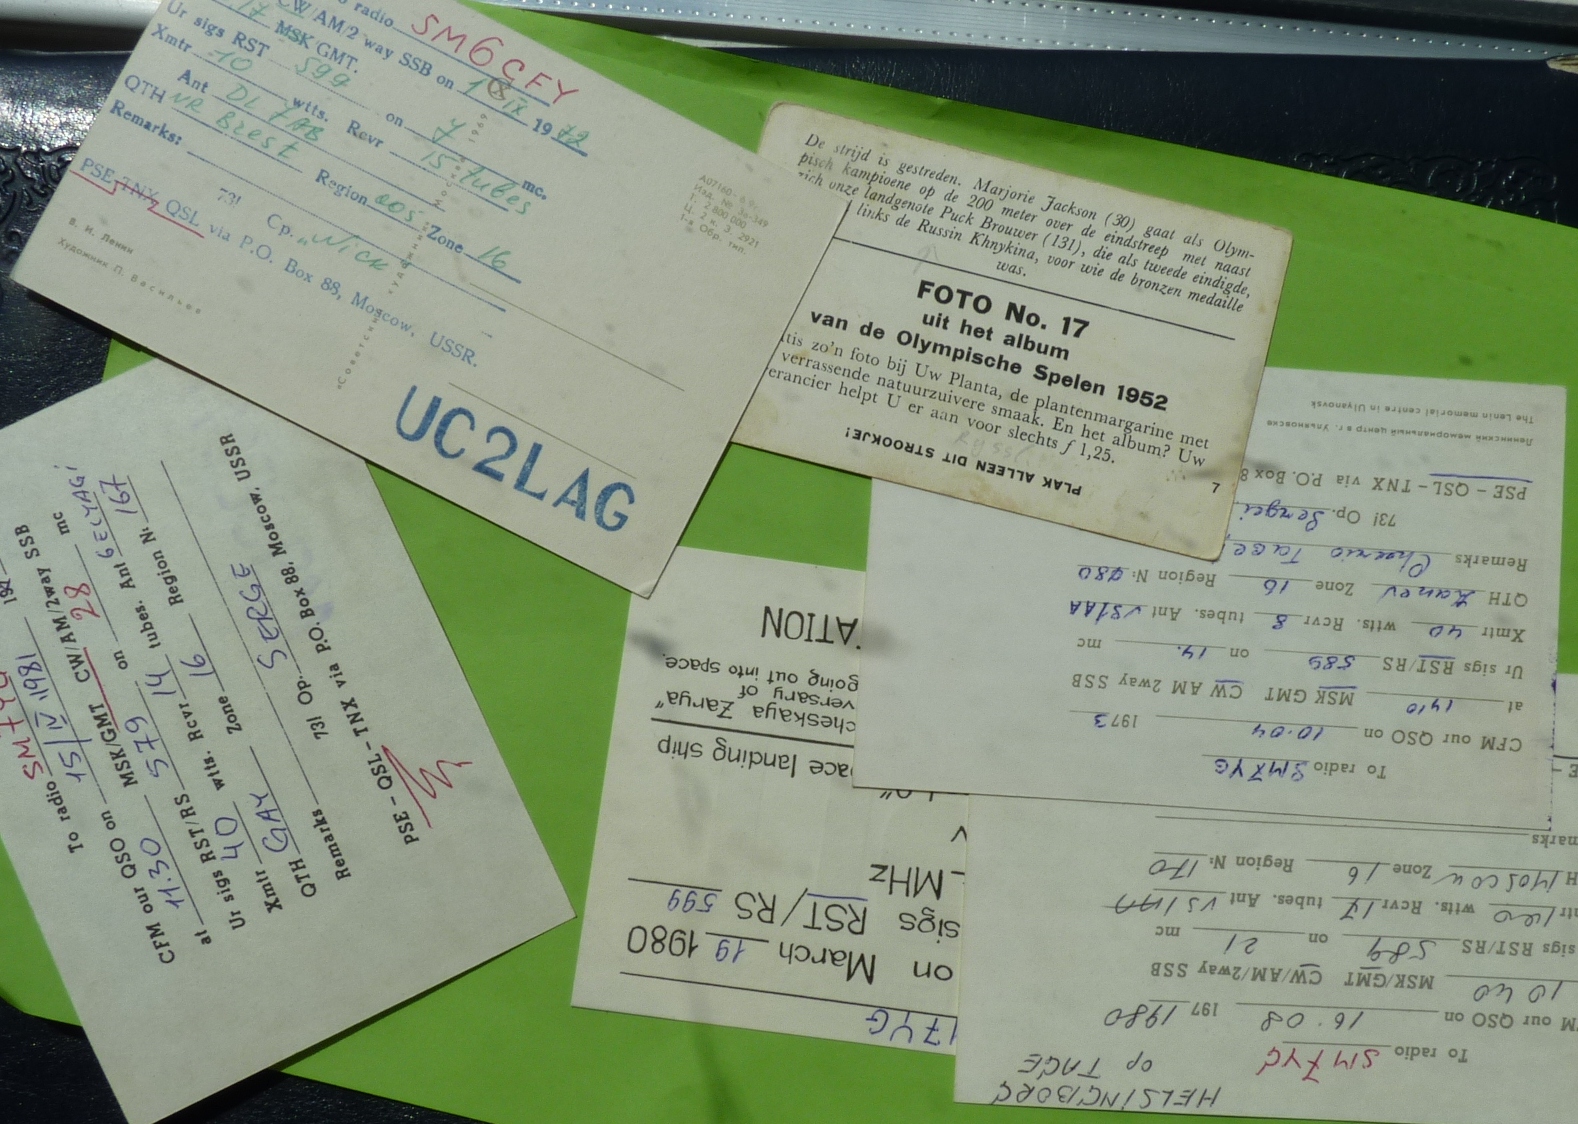 To radio SM6CFY
CW/AM/2 way SSB on 18 IX 1972
17 MSK GMT.
Ur sigs RST 599 on 7 mc.
Xmtr 10 wtts. Rcvr 15 tubes
Ant DL7AB Region 005 Zone 16
QTH NR Brest
Remarks:
73! Op. "Nick
PSE TNX QSL via P.O. Box 88, Moscow, USSR.
В. И. Ленин
Художник П. Васильев
UC2LAG
De strijd is gestreden. Marjorie Jackson (30) gaat als Olym-
pisch kampioene op de 200 meter over de eindstreep met naast
zich onze landgenote Puck Brouwer (131), die als tweede eindigde,
links de Russin Khnykina, voor wie de bronzen medaille
was.
FOTO No. 17
uit het album
van de Olympische Spelen 1952
tis zo'n foto bij Uw Planta, de plantenmargarine met
verrassende natuurzuivere smaak. En het album? Uw
erancier helpt U er aan voor slechts f 1,25.
PLAK ALLEEN DIT STROOKJE!
7
To radio SM7YG
CFM our QSO on 15 IV 1981
at 11.30 MSK/GMT CW/AM/2way SSB
Ur sigs RST/RS 579 on 28 mc
Xmtr 40 wtts. Rcvr 14 tubes. Ant
QTH GAY Zone 16 Region N: 167
Remarks
73! Op. SERGE
PSE - QSL - TNX via P.O. Box 88, Moscow, USSR
17YG
on March 19 1980
sigs RST/RS 599
MHz
ace landing ship
cheskaya Zarya"
versary of
going out into space.
ATION
To radio SM7YG
CFM our QSO on 10.04 1973
at 1410 MSK GMT CW AM 2way SSB
Ur sigs RST/RS 589 on 14. mc
Xmtr 40 wtts. Rcvr 8 tubes. Ant VS1AA
QTH Zone 16 Region N: 080
Remarks
73! Op. Sergei
PSE - QSL - TNX via P.O. Box 8
Ленинский мемориальный центр в г. Ульяновске
The Lenin memorial centre in Ulyanovsk
HELSINGBORG
op TAGE
To radio SM7YG
M our QSO on 16.08 197 1980
1040 MSK/GMT CW/AM/2way SSB
sigs RST/RS 589 on 21 mc
wtts. Rcvr 17 tubes. Ant VS1AA
H Moscow Zone 16 Region N: 170
marks